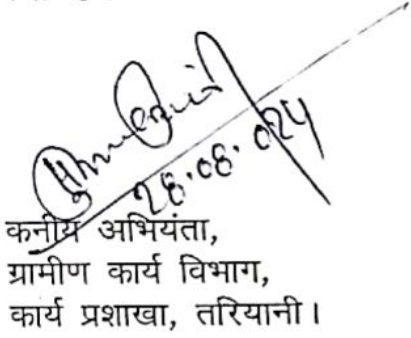 28.08.024
कनीय अभियंता,
ग्रामीण कार्य विभाग,
कार्य प्रशाखा, तरियानी।